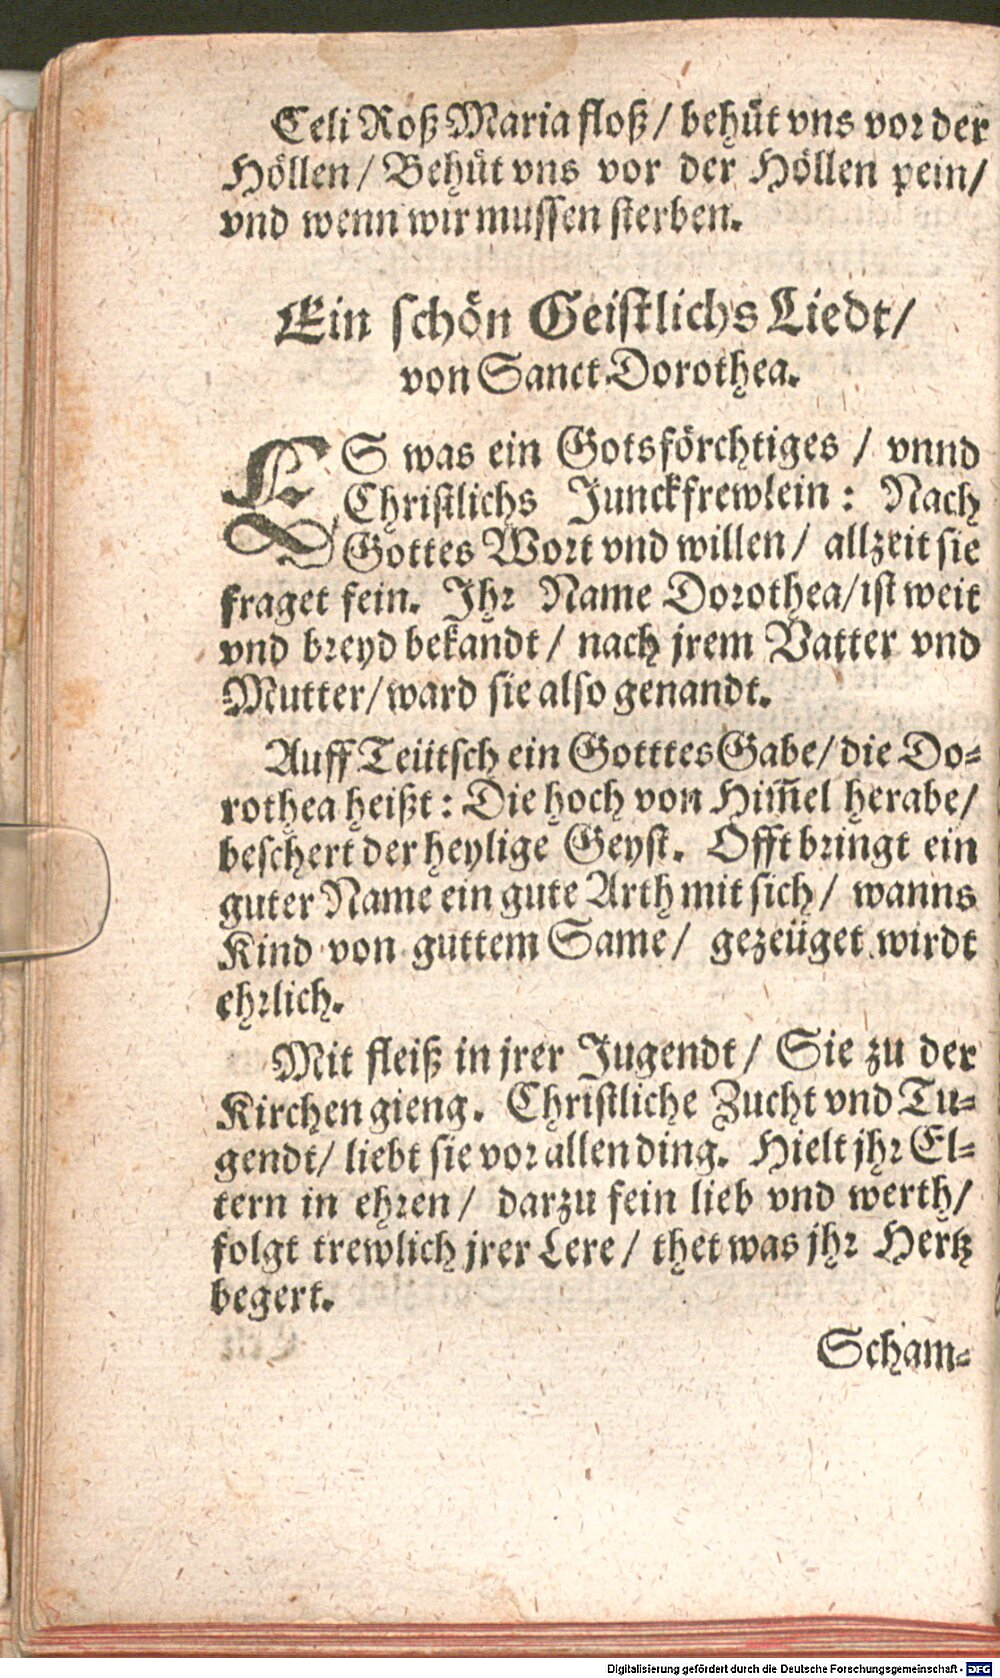 Celi Roß Maria floß / behüt vns vor der
Höllen / Behüt vns vor der Höllen pein /
vnd wenn wir mussen sterben.
Ein schön Geistlichs Liedt /
von Sanct Dorothea.
ES was ein Gotsförchtiges / vnnd
Christlichs Junckfrewlein : Nach
Gottes Wort vnd willen / allzeit sie
fraget fein. Jhr Name Dorothea / ist weit
vnd breyd bekandt / nach jrem Vatter vnd
Mutter / ward sie also genandt.
Auff Teütsch ein Gotttes Gabe / die Do-
rothea heißt : Die hoch von Him̄el herabe /
beschert der heylige Geyst. Offt bringt ein
guter Name ein gute Arth mit sich / wanns
Kind von guttem Same / gezeüget wirdt
ehrlich.
Mit fleiß in jrer Jugendt / Sie zu der
Kirchen gieng. Christliche Zucht vnd Tu-
gendt / liebt sie vor allen ding. Hielt jhr El-
tern in ehren / darzu fein lieb vnd werth /
folgt trewlich jrer Lere / thet was jhr Hertz
begert.
Scham-
Digitalisierung gefördert durch die Deutsche Forschungsgemeinschaft - DFG